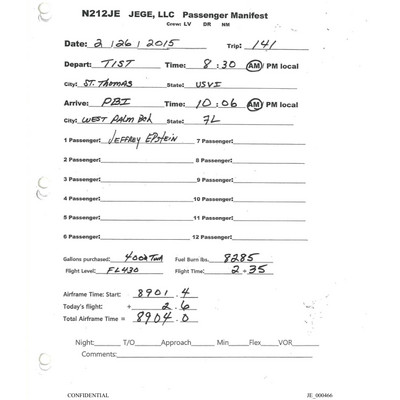 N212JE JEGE, LLC Passenger Manifest
Crew: LV DR NM
Date: 2 | 26 | 2015 Trip: 141
Depart: TIST Time: 8 : 30 AM/ PM local
City: ST. THOMAS State: USVI
Arrive: PBI Time: 10 : 06 AM/ PM local
City: WEST PALM BCH State: FL
1 Passenger: JEFFREY EPSTEIN 7 Passenger:
2 Passenger: 8 Passenger:
3 Passenger: 9 Passenger:
4 Passenger: 10 Passenger:
5 Passenger: 11 Passenger:
6 Passenger: 12 Passenger:
Gallons purchased: 400@ Fuel Burn lbs. 8285
Flight Level: FL430 Flight Time: 2+35
Airframe Time: Start: 8901.4
Today's flight: + 2.6
Total Airframe Time = 8904.0
Night: T/O Approach Min Flex VOR
Comments:
CONFIDENTIAL JE_000466